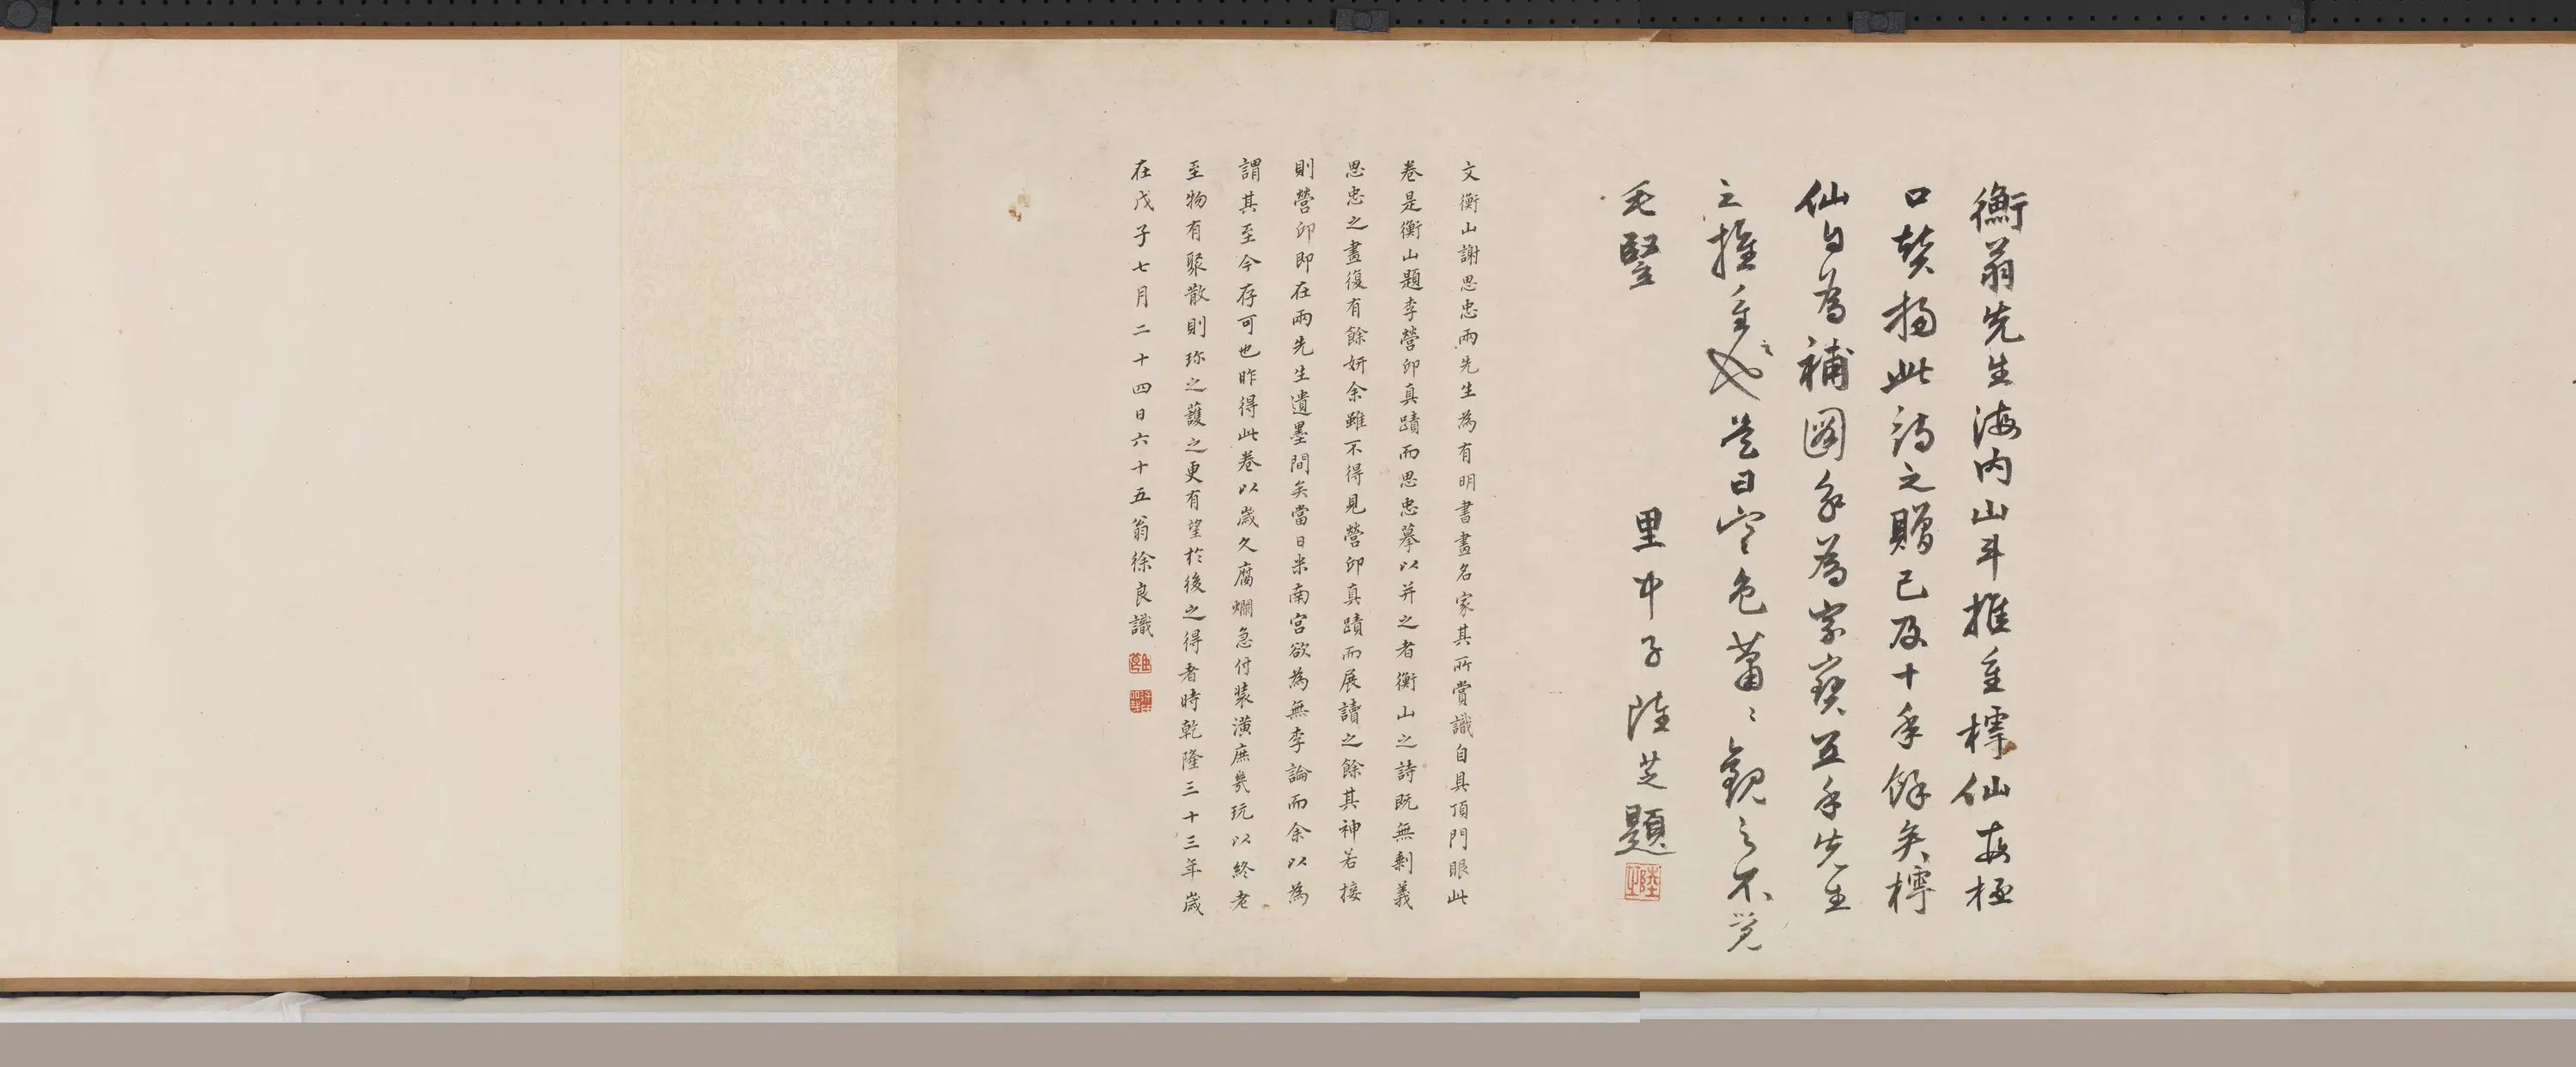 衡翁先生海内山斗推重樗仙每極
口獎揚此詩之贈已及十年餘矣樗
仙自為補圖永為家寶並年先生
之推重也是日寒色蕭〻觀之不覺
毛豎
里中子陸芝題
文衡山謝思忠兩先生為有明書畫名家其所賞識自具頂門眼此
卷是衡山題李營邱真蹟而思忠摹以并之者衡山之詩既無剩義
思忠之畫復有餘妍余雖不得見營邱真蹟而展讀之餘其神若接
則營邱即在兩先生遺墨間矣當日米南宮欲為無李論而余以為
謂其至今存可也昨得此卷以歲久腐爛急付裝潢庶幾玩以終老
至物有聚散則珍之護之更有望於後之得者時乾隆三十三年歲
在戊子七月二十四日六十五翁徐良識